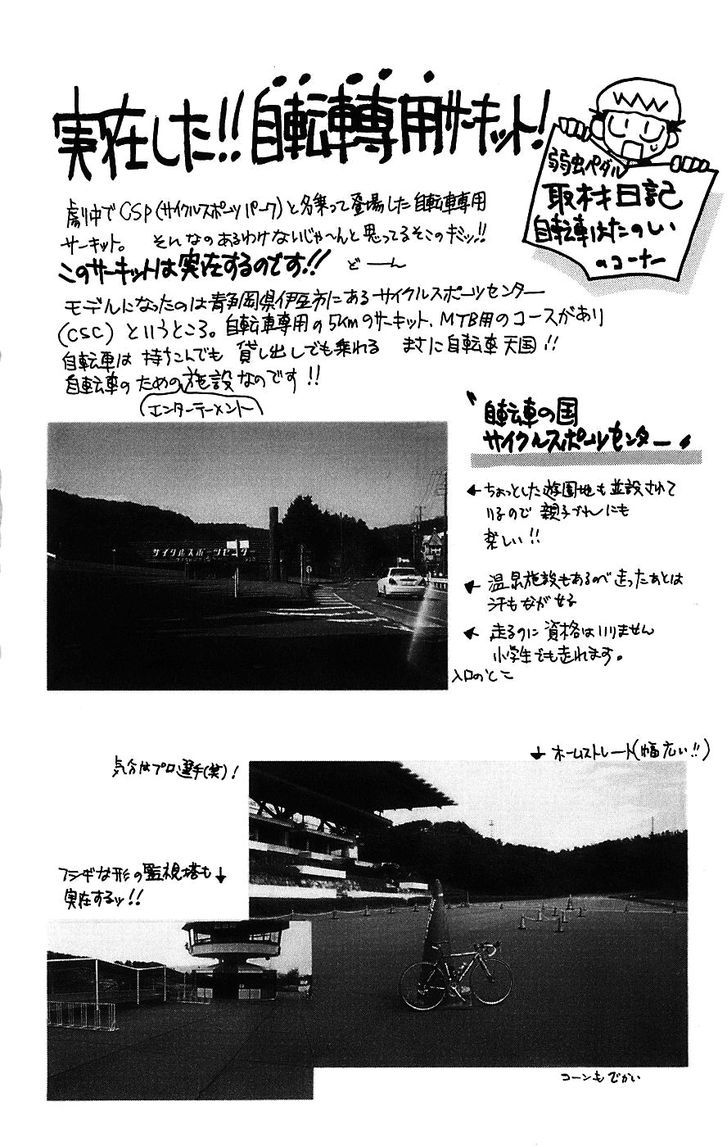 実在した!! 自転車専用サーキット!
弱虫ペダル
取材日記
自転車はたのしい
のコーナー
劇中でCSP(サイクルスポーツパーク)と名乗って登場した自転車専用
サーキット。 そんなのあるわけないじゃ〜んと思ってるそこのキミッ!!
このサーキットは実在するのです!! どーん
モデルになったのは静岡県伊豆市にあるサイクルスポーツセンター
(CSC) というところ。自転車専用の5kmのサーキット、MTB用のコースがあり
自転車は 持ちこんでも 貸し出しでも乗れる まさに自転車天国!!
自転車のための施設なのです!!
(エンターテーメント)
自転車の国
サイクルスポーツセンター
←ちょっとした遊園地も並設されて
いるので 親子づれにも
楽しい!!
サイクルスポーツセンター
← 温泉施設もあるので走ったあとは
汗もながせる
← 走るのに資格はいりません
小学生でも走れます。
入口のとこ
↓ ホームストレート(幅広い!!)
気分はプロ選手(笑)!
フシギな形の監視塔も↓
実在するッ!!
コーンもでかい